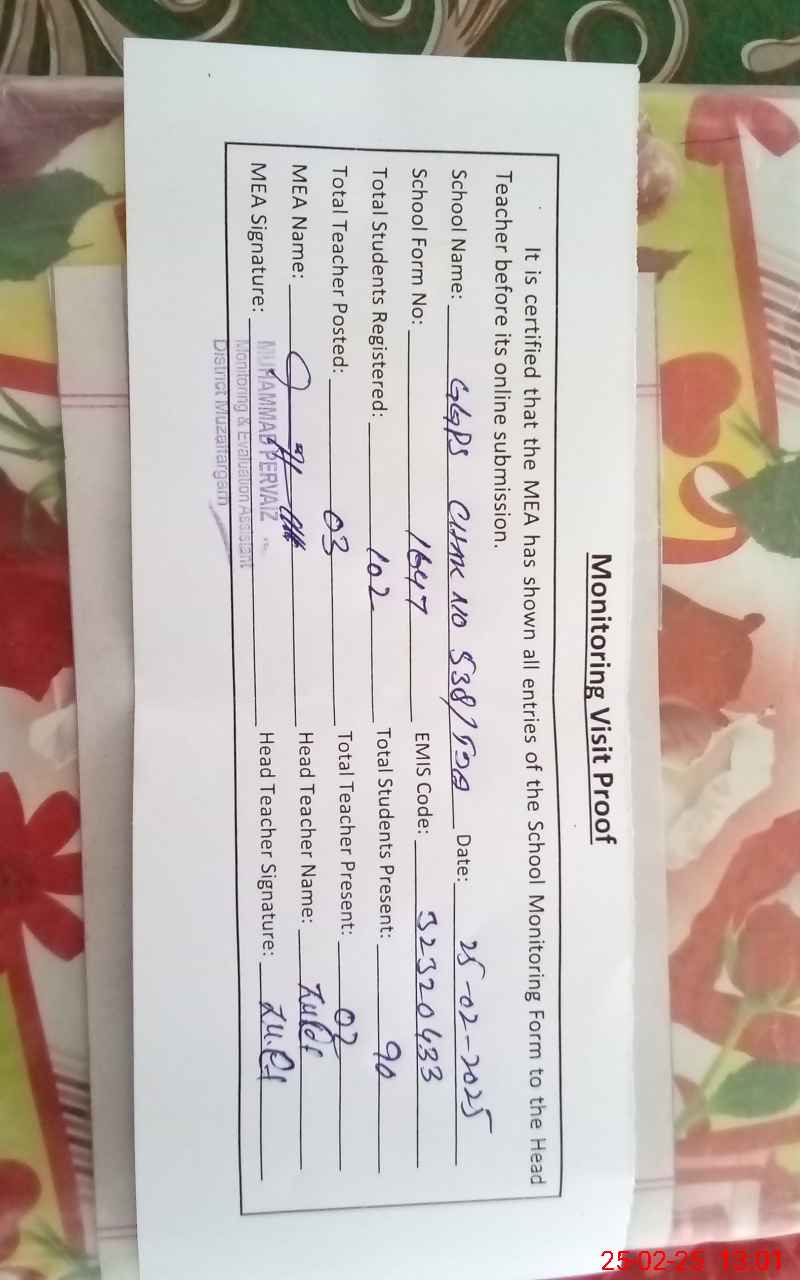 Monitoring Visit Proof
It is certified that the MEA has shown all entries of the School Monitoring Form to the Head
Teacher before its online submission.
School Name: GGPS CHAK NO 538/TDA Date: 25-02-2025
School Form No: 1647 EMIS Code: 32320433
Total Students Registered: 102 Total Students Present: 90
Total Teacher Posted: 03 Total Teacher Present: 02
MEA Name: Head Teacher Name:
MEA Signature: Head Teacher Signature:
MUHAMMAD PERVAIZ
Monitoring & Evaluation Assistant
District Muzaffargarh
25-02-25 13:01